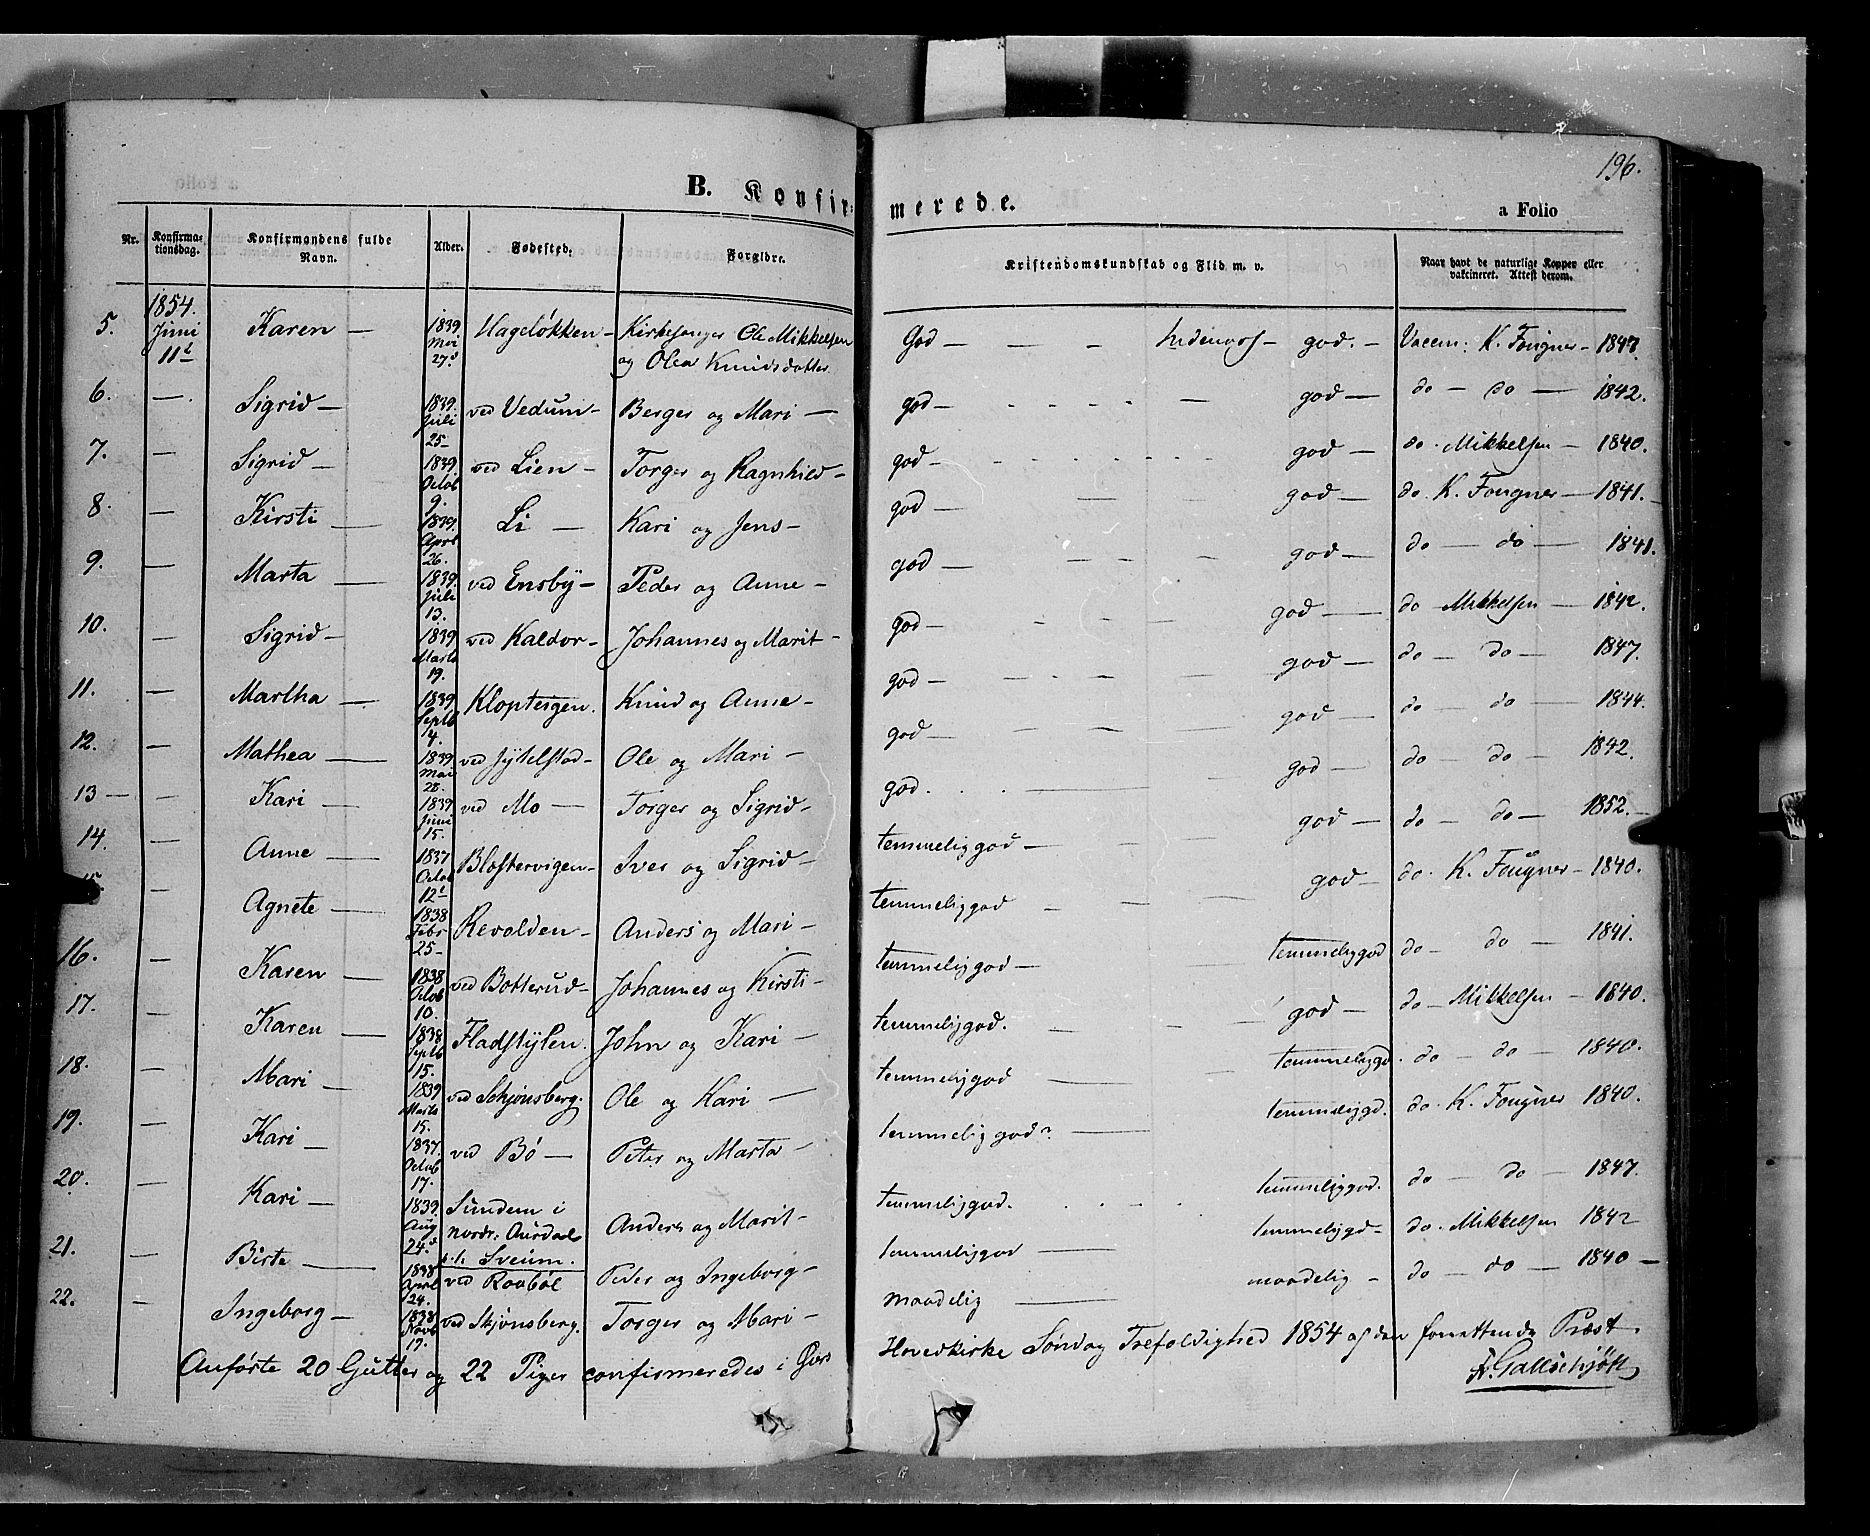 196.
B. Konfir-
merede.
a Folio
Nr. Konfirma-tionsdag. Konfirmandens fulde Navn. Alder. Fødested. Forældre. Kristendomskundskab og Flid m. v. Naar havt de naturlige Kopper eller vakcineret. Attest derom.
1854.
5. Juni 11t Karen — 1839 Mai 27d Hageløkken — Kirkesanger Ole Mikkelsen og Olea Knudsdatter God — — — god. — Vaccin: K. Fougner — 1847.
6. — Sigrid — 1839. Juli 25 — ved Vedum — Berger og Mari — god — god — do — do — 1842.
7. — Sigrid — 1839 Octob 9. ved Lien — Torger og Ragnhild — god — god — do. Mikkelsen — 1840.
8. — Kirsti — 1839. Aprl 26. Li — Kari og Jens — god — god — do K. Fougner — 1841.
9. — Marta — 1839. Juli 13. ved Ensby — Peder og Anne — god — god — do — do — 1841.
10. — Sigrid — 1839 Marts 19. ved Kaldor — Johannes og Marit — god — god — do — Mikkelsen — 1842.
11. — Martha — 1839 Septb 4. Klopteigen. Knud og Anne — god — god — do — do — 1847.
12. — Mathea — 1839 Mai 28. ved Jytelstad — Ole og Mari — god — god — do — do — 1844.
13 — — Kari — 1839 Juni 15. ved Mo — Torger og Sigrid — god. god — do — do — 1842.
14. — Anne — 1837 Octob 12t Blostervigen — Iver og Sigrid — temmelig god — god — do — do — 1852.
— Agnete — 1838 Febr 25 — Revolden — Anders og Mari — temmelig god god — do. K. Fougner — 1840.
16. — Karen — 1838 Octob 10. ved Botterud — Johannes og Kirsti — temmelig god — temmelig god do — do — 1841.
17. — Karen — 1838 Septb 15. Fladstylen. John og Kari — temmelig god. god — do — Mikkelsen — 1840.
18. — Mari — 1839 Marts 15. ved Schjønsberg. Ole og Kari — temmelig god temmelig gd. do — do — 1840.
19. — Kari — 1837. Octob 17. ved Bø — Peter og Marta — temmelig god temmelig gd. do. K. Fougner 1840.
20. — Kari — 1839. Aug 24.d Sundem i nordr. Aurdal Sveum. Anders og Marit — temmelig god. temmelig god. do — do — 1847
21. — Birte — 1838 Aprl 24. ved Roubøl Peder og Ingeborg — temmelig god temmelig gd — do. Mikkelsen 1842
22. — Ingeborg — 1838 Novb 17. ved Skjønsberg. Torger og Mari — maadelig maadelig — do — do — 1840 —
Anførte 20 Gutter og 22 Piger confirmeredes i Hovedkirke Søndag Trefoldighed 1854 af den forrettende Præst.